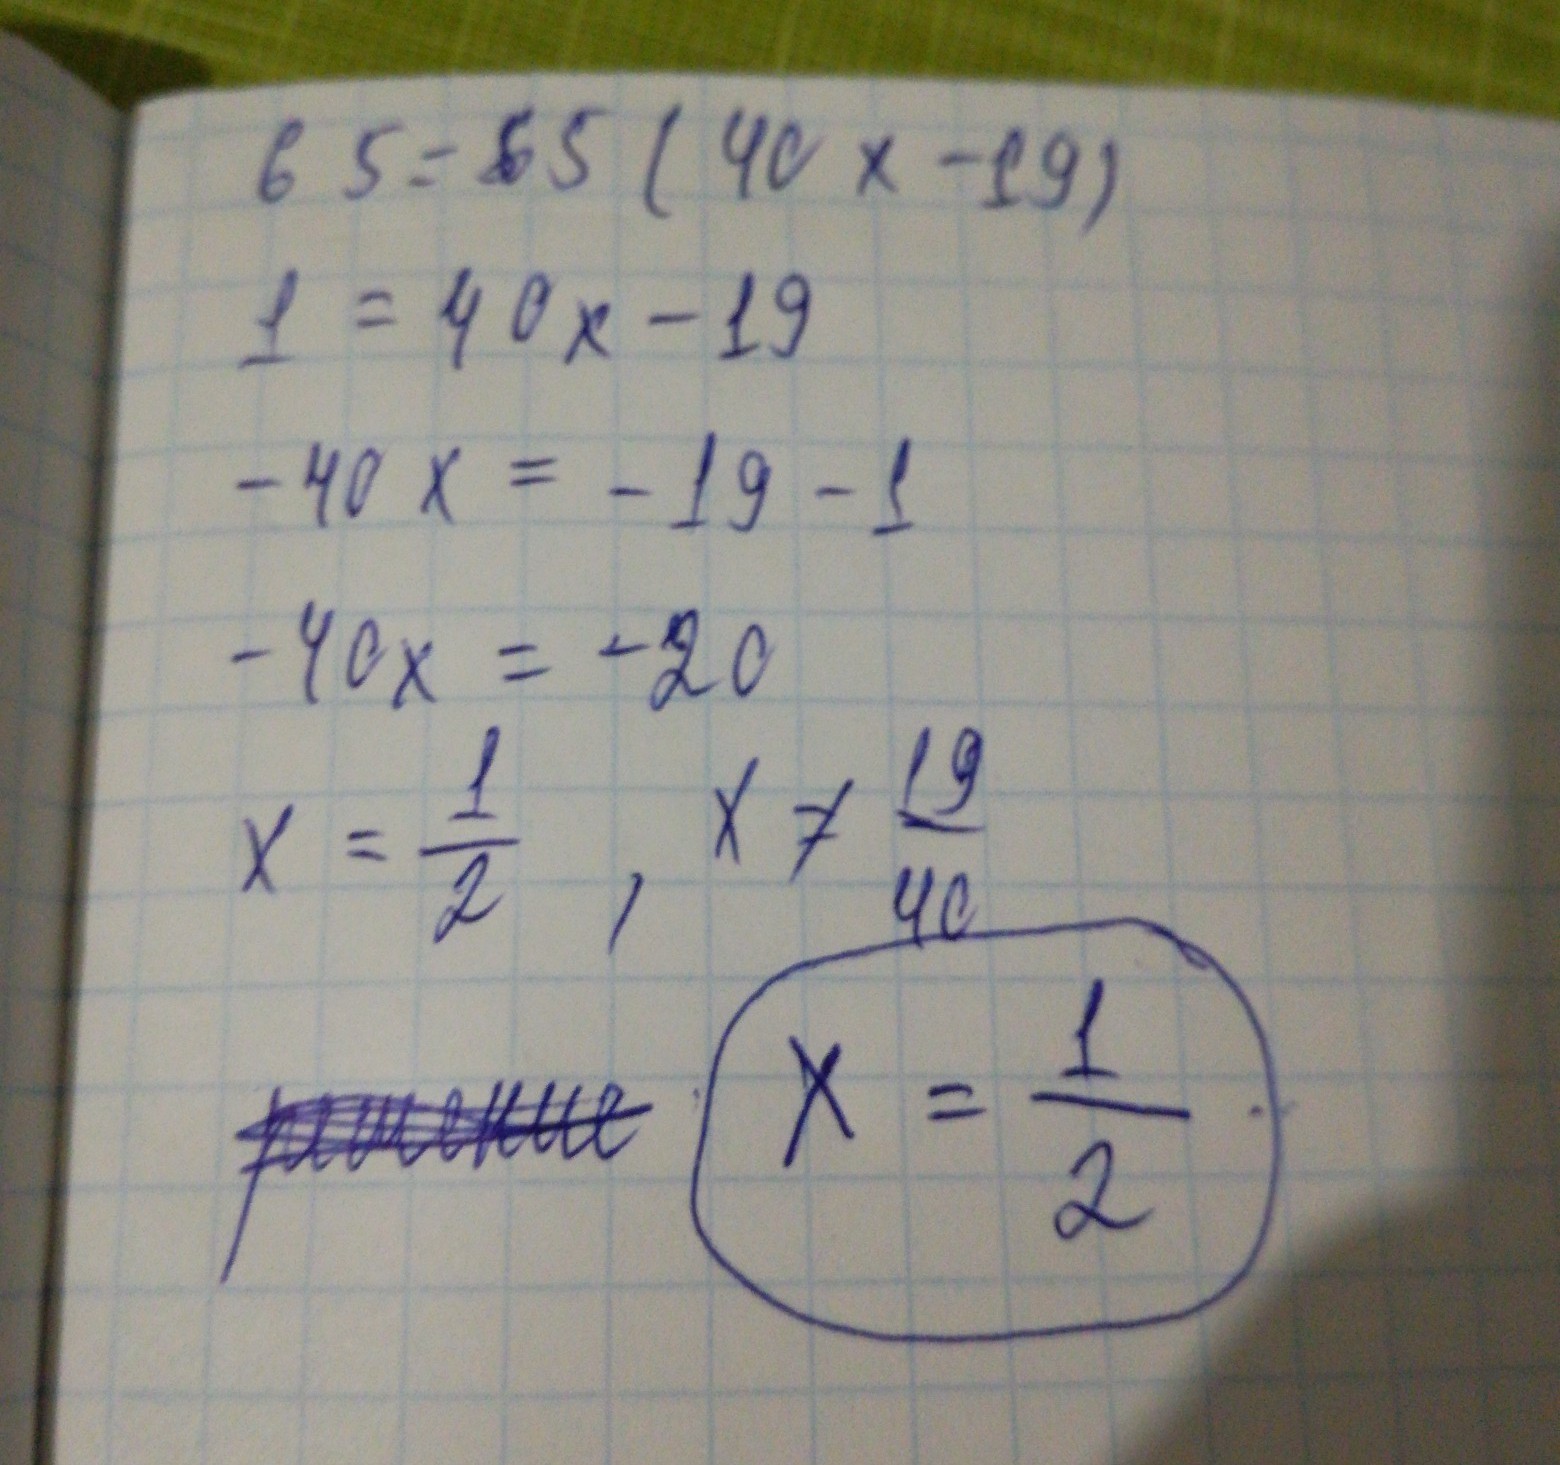 65=65(40x-19)
1=40x-19
-40x=-19-1
-40x=-20
x=1/2, x≠19/40
решение x=1/2